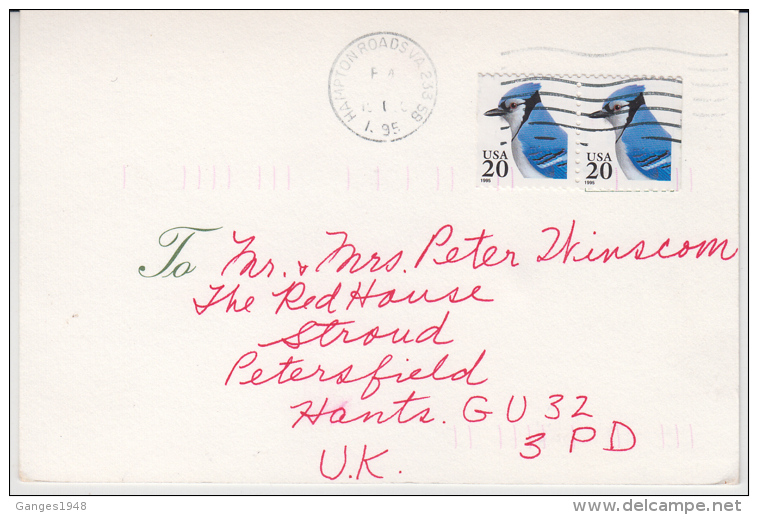 HAMPTON ROADS VA 233 58
1. 95
USA
20
1995
USA
20
1995
To Mr. & Mrs. Peter Winscom
The Red House
Stroud
Petersfield
Hants. GU32
3PD
U.K.
Ganges1948
www.delcampe.net